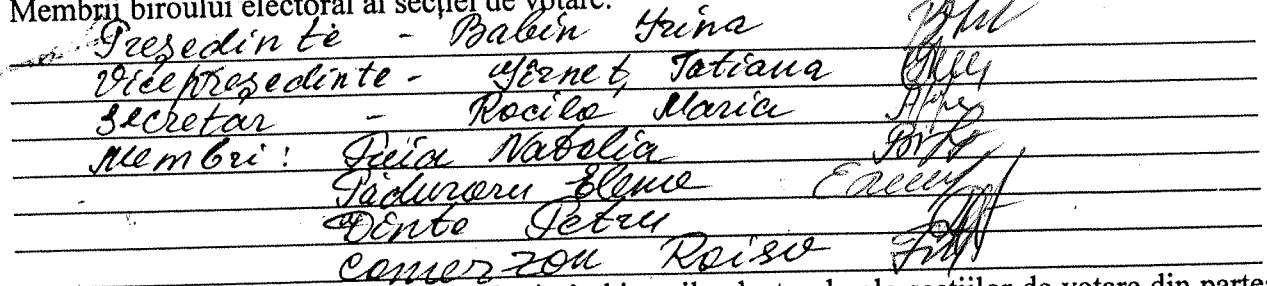 Membrii biroului electoral al secției de votare:
Președinte - Babin Irina
Vicepreședinte - Jîrneț Tatiana
Secretar - Rocila Maria
Membri: Natalia
Păduraru Elena
Dînte Petru
Comerzon Raisa
de votare din partea